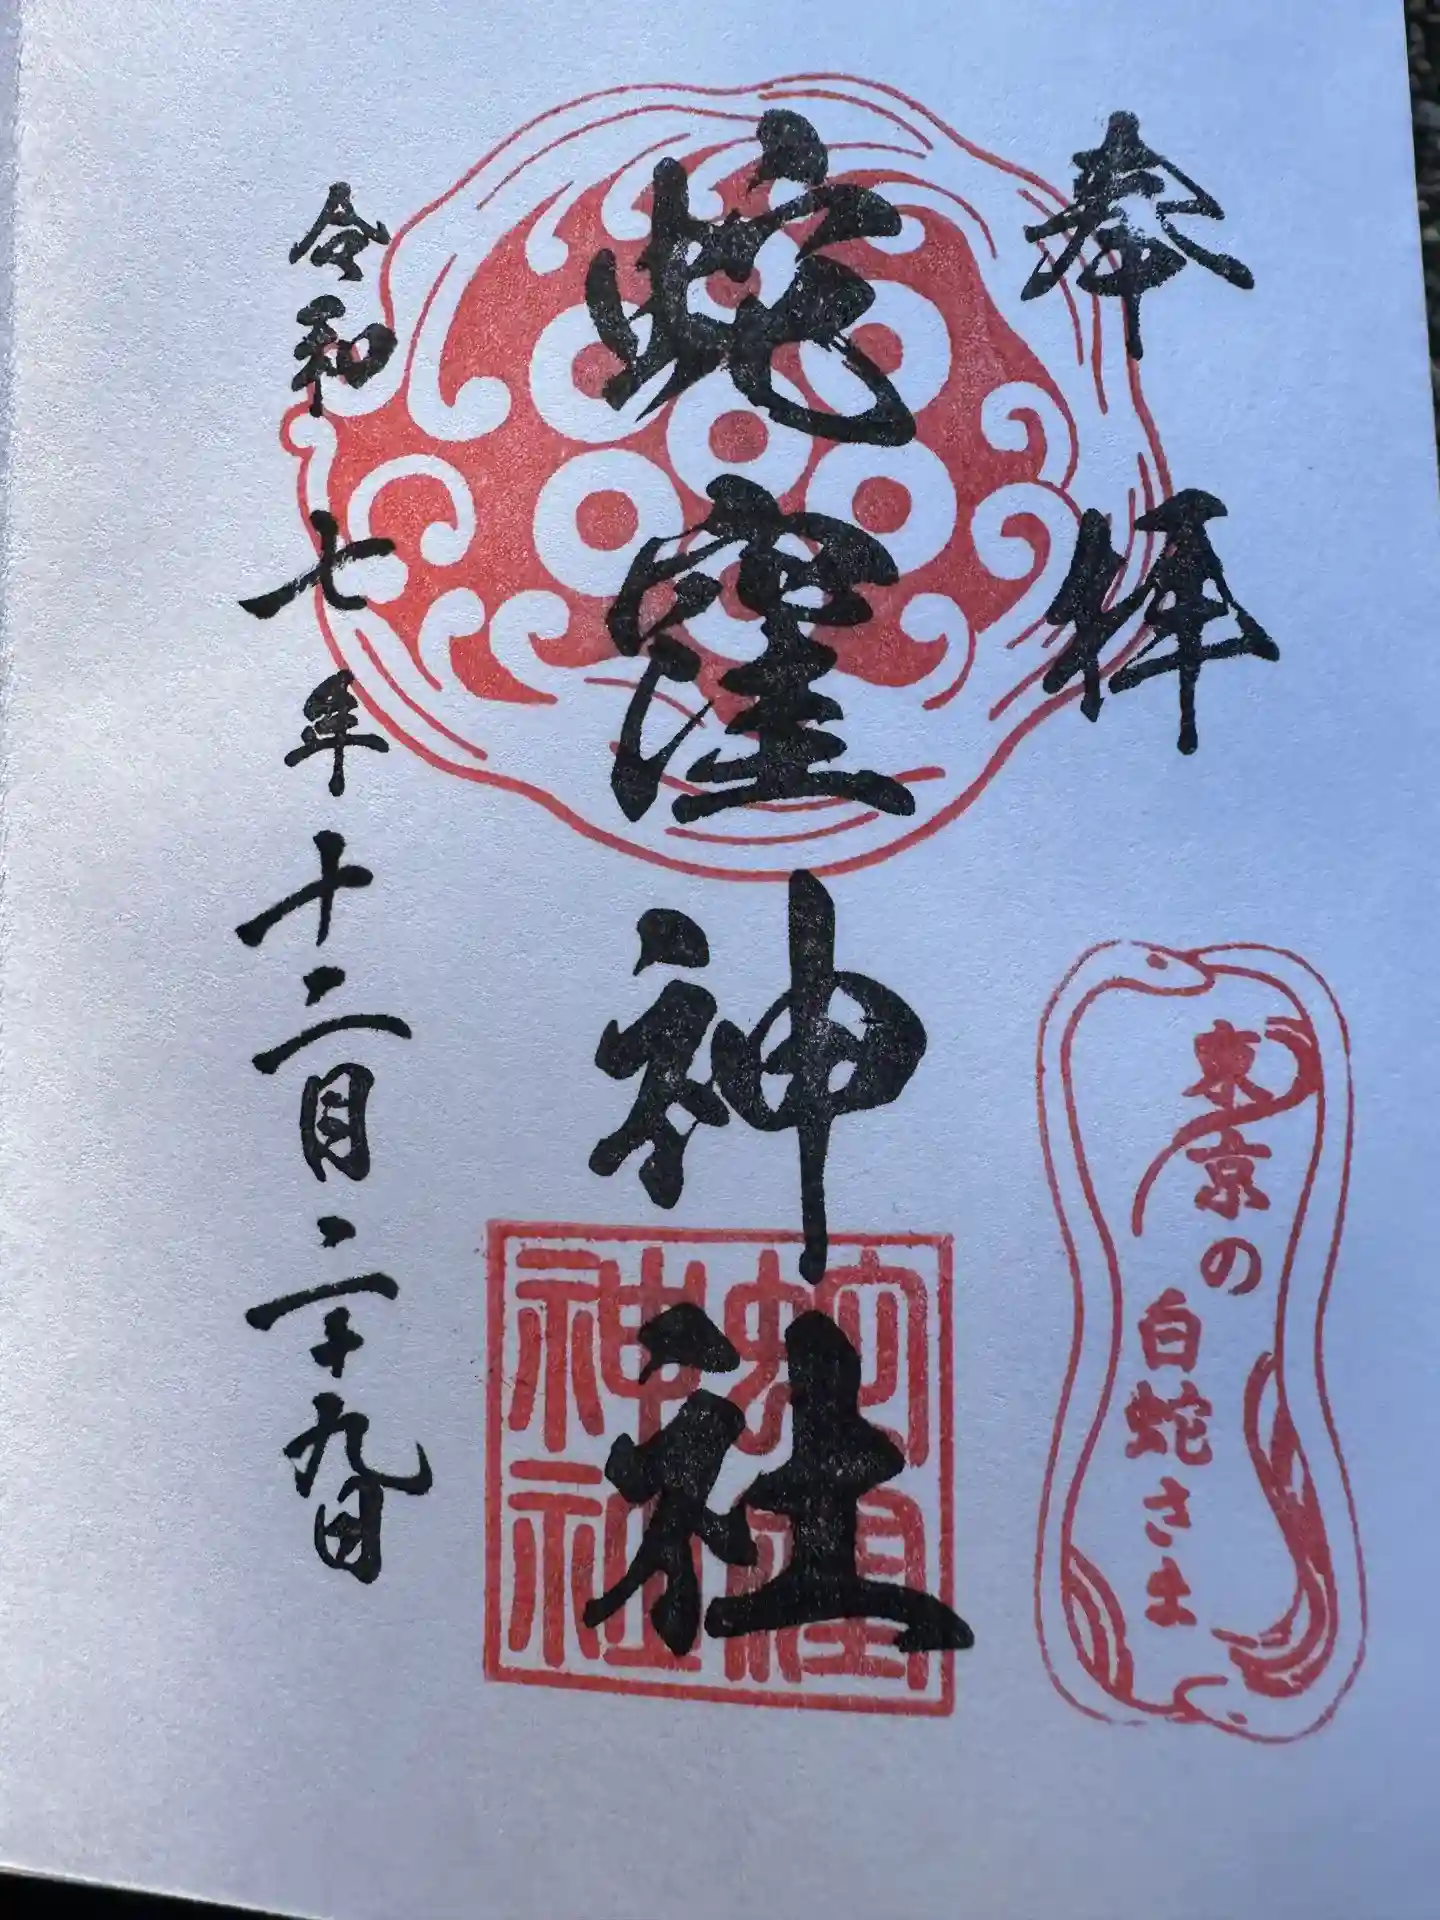 奉拝
東京の
白蛇さま
蛇窪神社
蛇窪
神社
令和七年十二月二十九日